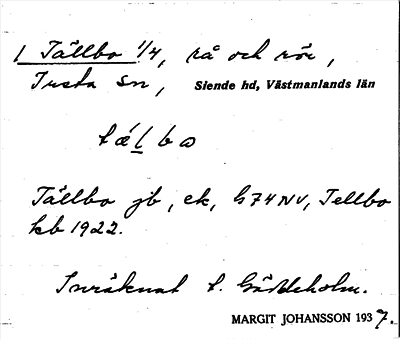 1 Tällbo 1/4, rå och rör,
Irsta sn, Siende hd, Västmanlands län
tälbω
Tällbo jb, ek, G74NV, Tellbo
kb 1922.
Inräknat t. Gäddeholm.
MARGIT JOHANSSON 1937.